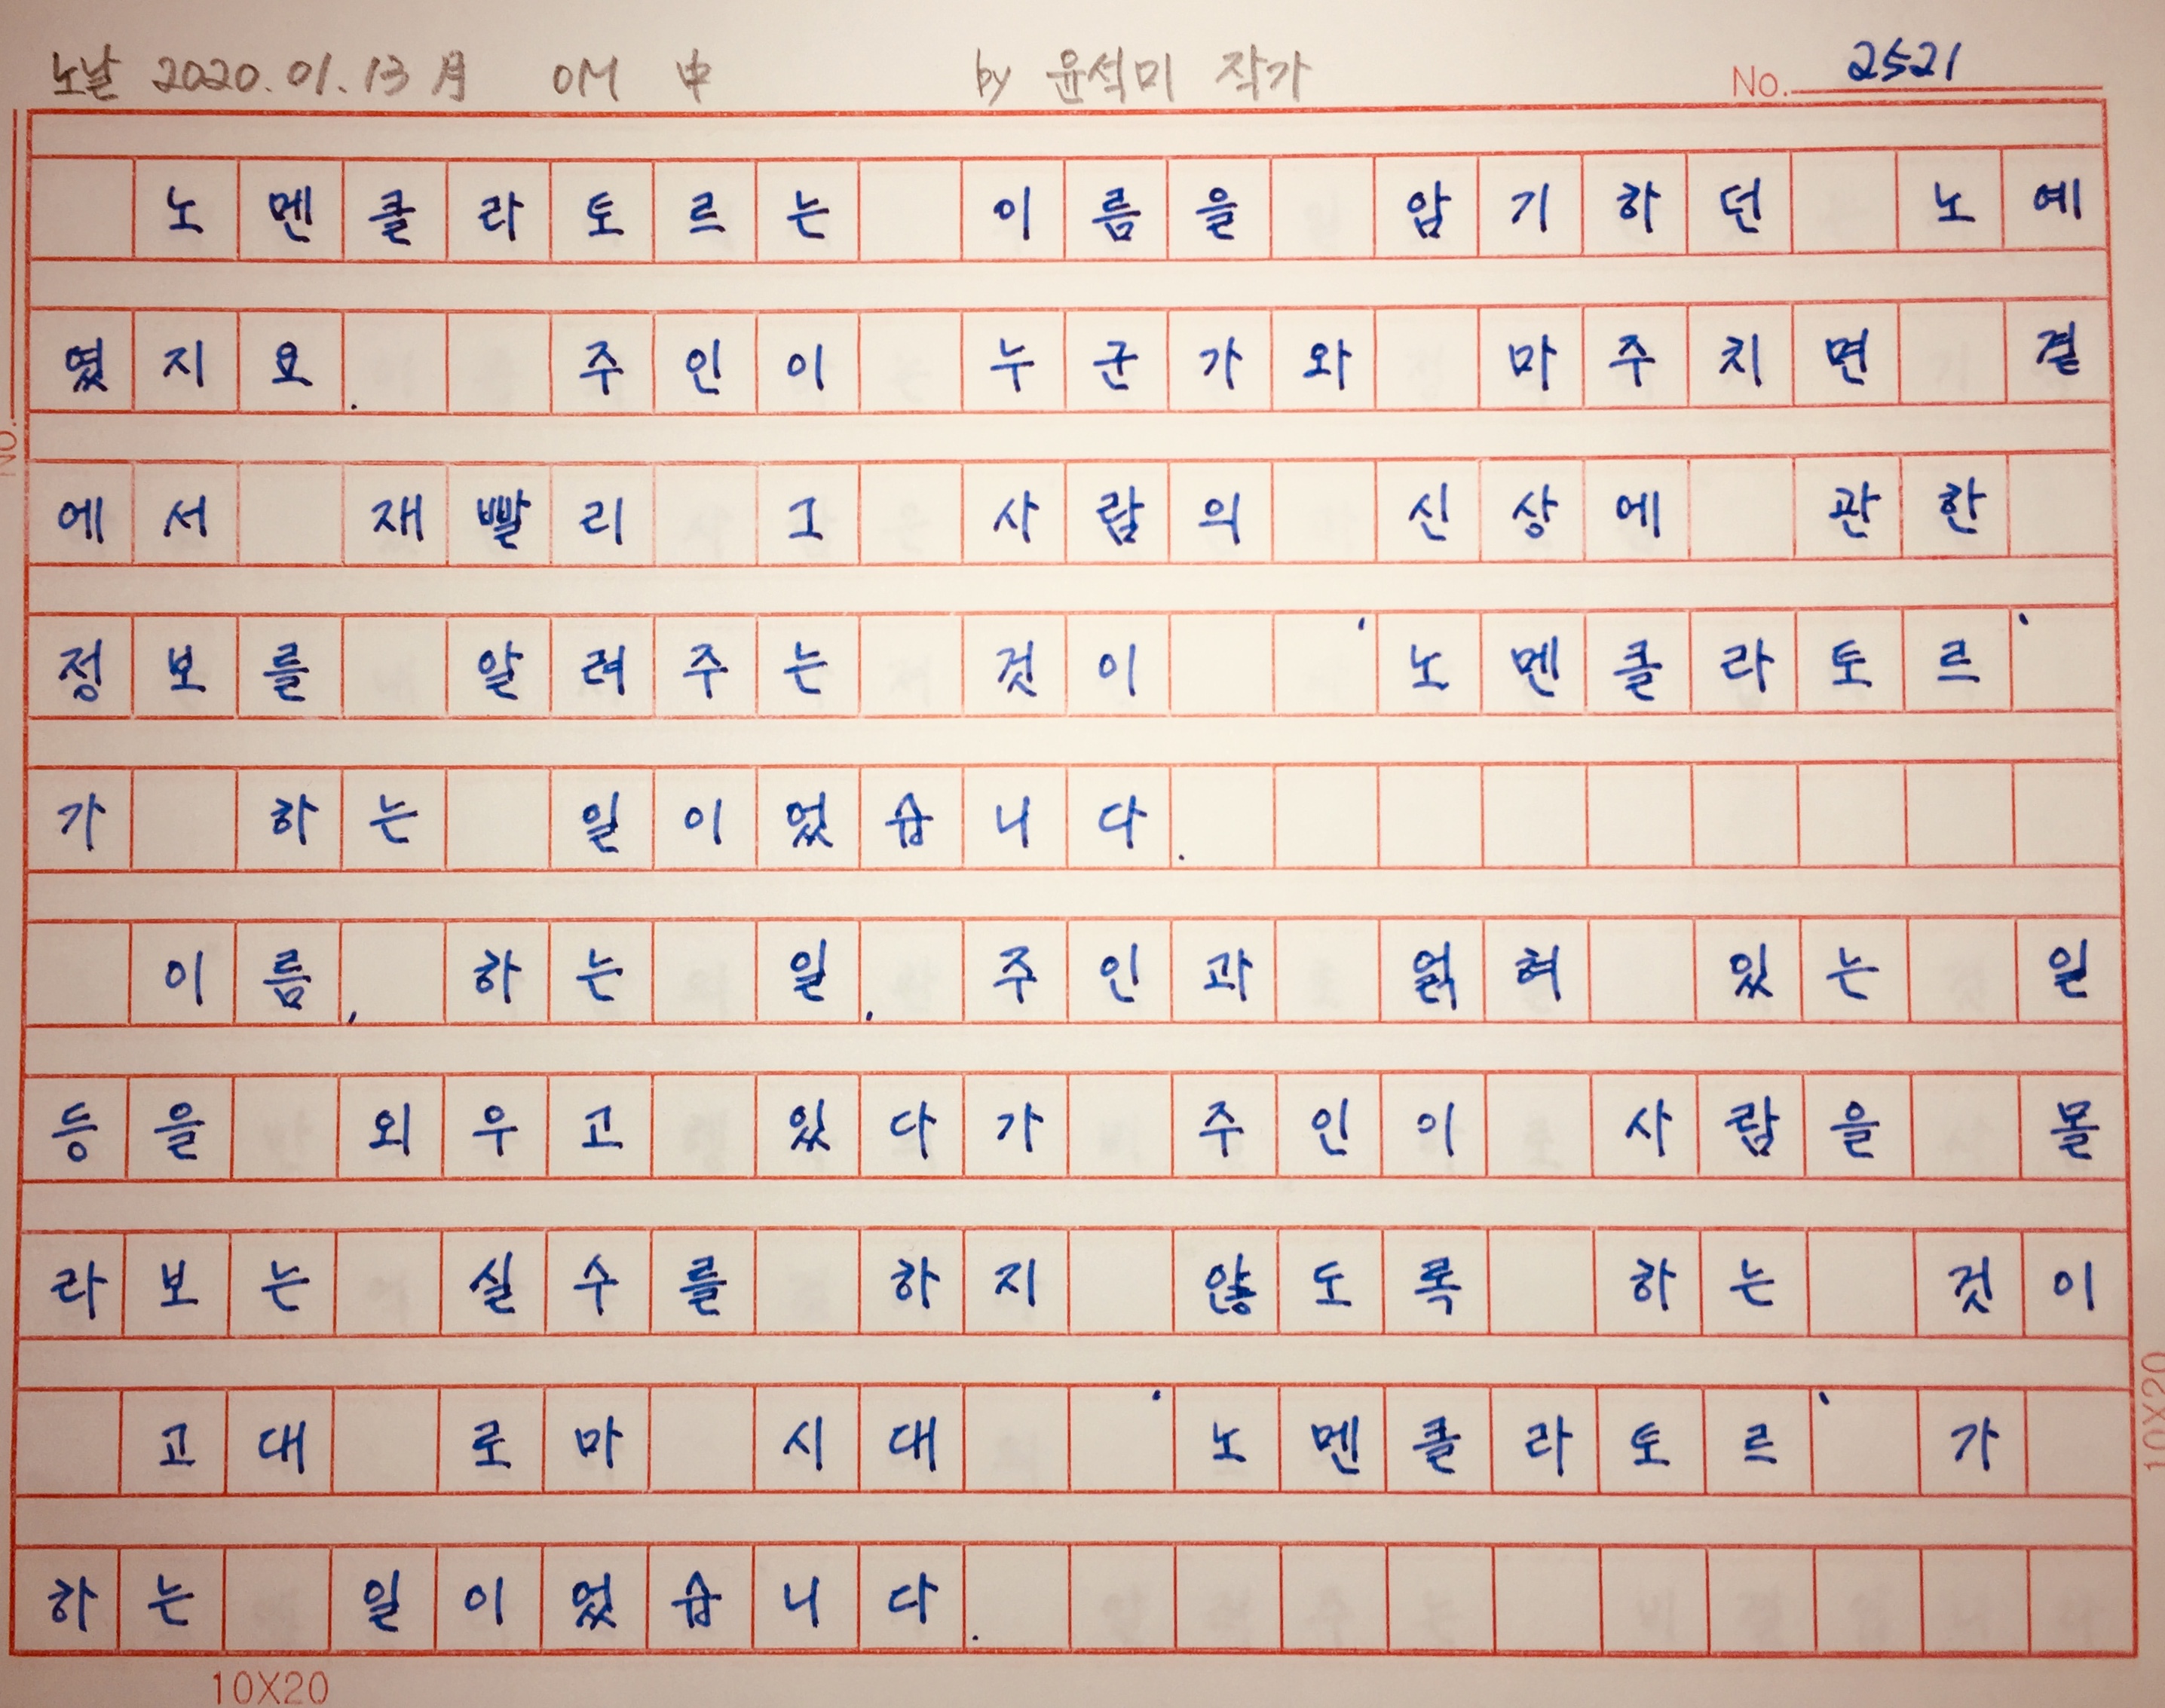 노날 2020.01.13 月 OM 中 by 윤석미 작가 No. 2521
노멘클라토르는 이름을 암기하던 노예
였지요. 주인이 누군가와 마주치면 곁
에서 재빨리 그 사람의 신상에 관한
정보를 알려주는 것이 '노멘클라토르'
가 하는 일이었습니다.
이름, 하는 일, 주인과 얽혀 있는 일
등을 외우고 있다가 주인이 사람을 몰
라보는 실수를 하지 않도록 하는 것이
고대 로마 시대 '노멘클라토르'가
하는 일이었습니다.
10X20
No.
10X20